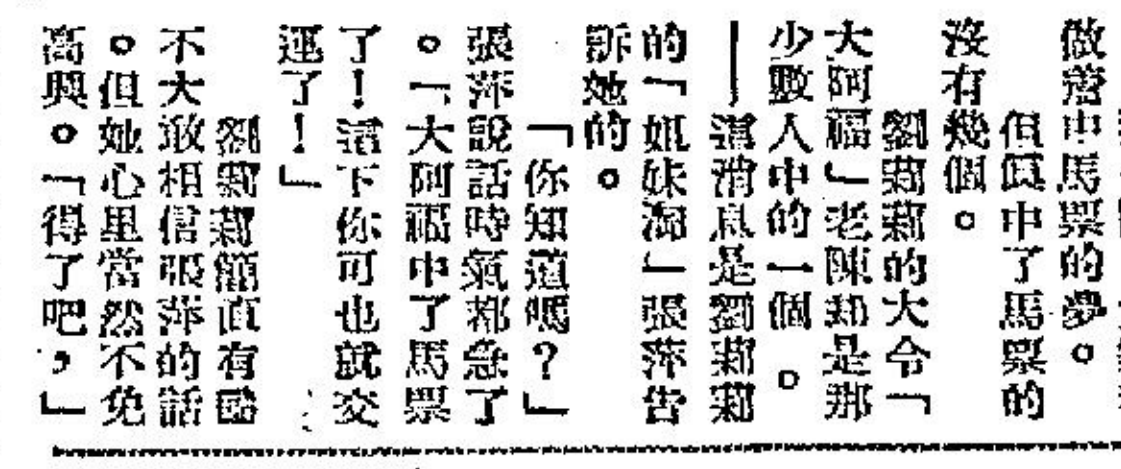 做着中馬票的夢。
但眞中了馬票的
沒有幾個。
劉莉莉的大令「
大阿福」老陳却是那
少數人中的一個。
——這消息是劉莉莉
的「姐妹淘」張萍告
訴她的。
「你知道嗎？」
張萍說話時氣都急了
。「大阿福中了馬票
了！這下你可也就交
運了！」
劉莉莉簡直有點
不大敢相信張萍的話
。但她心里當然不免
高興。「得了吧，」